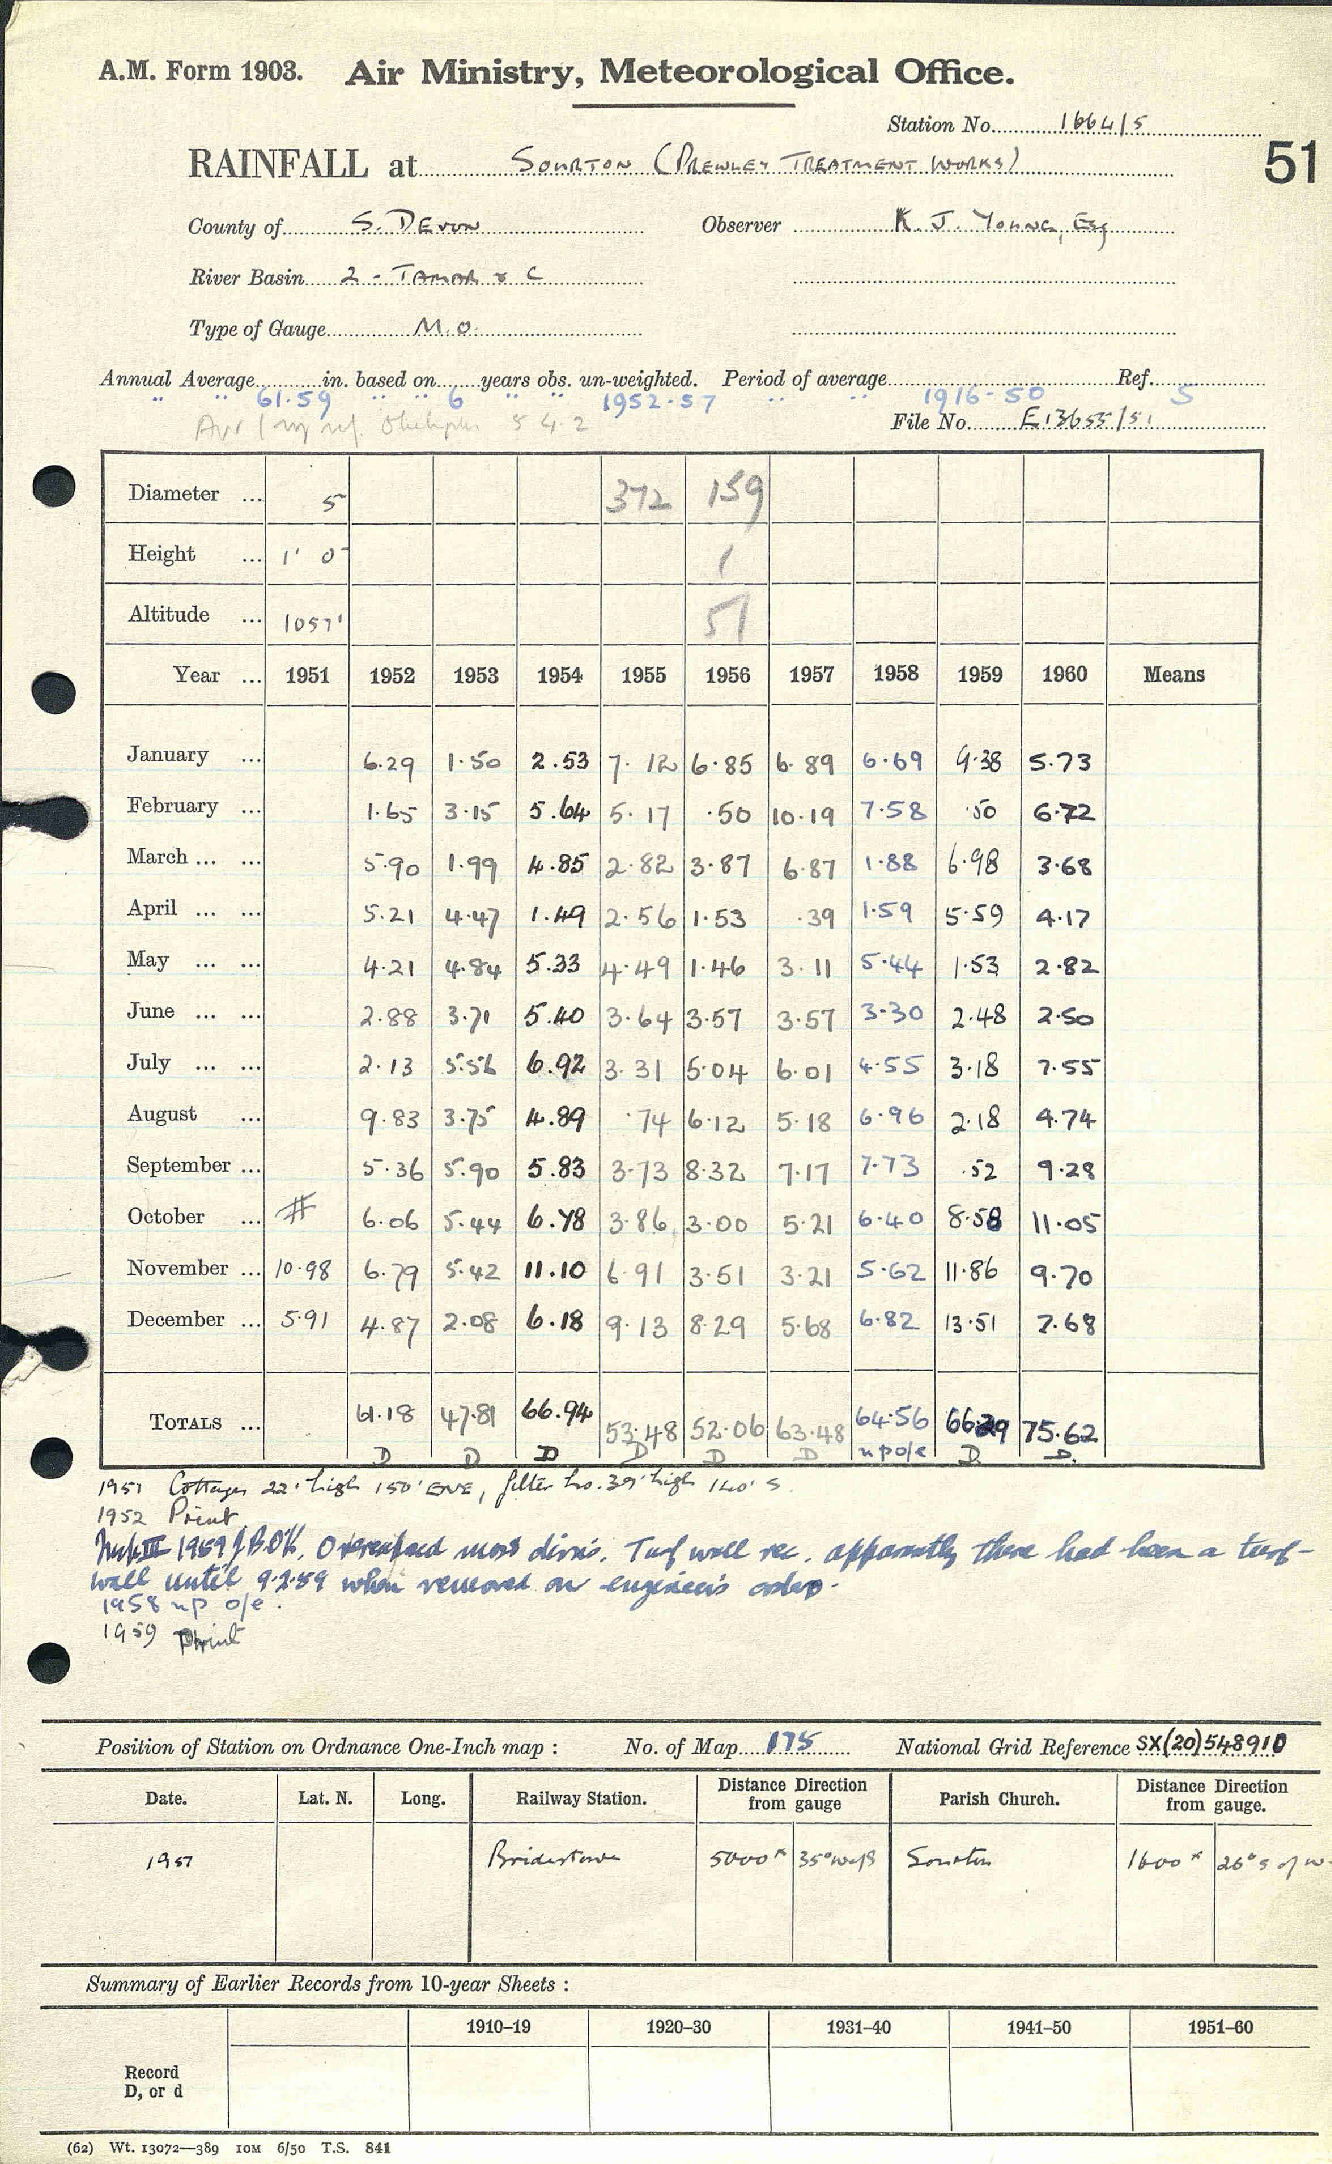 A.M. Form 1903. Air Ministry, Meteorological Office.
Station No. 1664/5
51
RAINFALL at SOURTON (PREWLEY TREATMENT WORKS)
County of S. DEVON Observer K. J. YOUNG, Esq
River Basin 2 - TAMAR & C
Type of Gauge M.O.
Annual Average in. based on years obs. un-weighted. Period of average Ref.
" " 61.59 " " 6 " " 1952-57 " " 1916-50 5
5 4.2
File No. E13655/51
Diameter ... 5 372 159
Height ... 1' 0" 1
Altitude ... 1057' 51
Year ... 1951 1952 1953 1954 1955 1956 1957 1958 1959 1960 Means
January ... 6.29 1.50 2.53 7.12 6.85 6.89 6.69 9.38 5.73
February ... 1.65 3.15 5.64 5.17 .50 10.19 7.58 .50 6.72
March ... ... 5.90 1.99 4.85 2.82 3.87 6.87 1.88 6.98 3.68
April ... ... 5.21 4.47 1.49 2.56 1.53 .39 1.59 5.59 4.17
May ... ... 4.21 4.84 5.33 4.49 1.46 3.11 5.44 1.53 2.82
June ... ... 2.88 3.71 5.40 3.64 3.57 3.57 3.30 2.48 2.50
July ... ... 2.13 5.56 6.92 3.31 5.04 6.01 4.55 3.18 7.55
August ... 9.83 3.75 4.89 .74 6.12 5.18 6.96 2.18 4.74
September ... 5.36 5.90 5.83 3.73 8.32 7.17 7.73 .52 9.28
October ... # 6.06 5.44 6.78 3.86 3.00 5.21 6.40 8.58 11.05
November ... 10.98 6.79 5.42 11.10 6.91 3.51 3.21 5.62 11.86 9.70
December ... 5.91 4.87 2.08 6.18 9.13 8.29 5.68 6.82 13.51 7.68
TOTALS ... 61.18 47.81 66.94 53.48 52.06 63.48 64.56 66.29 75.62
D D D D D D n p o/e D D
1951 Cottages 22' high 150' ENE, filter ho. 39' high 140' S
1952 Print
1959 Overexposed most dirns. Turf wall rec. apparently there had been a turf-
wall until 9.2.59 when removed on engineer's orders.
1958 n p o/e.
1959 Print
Position of Station on Ordnance One-Inch map : No. of Map 175 National Grid Reference SX(20)548910
Date. Lat. N. Long. Railway Station. Distance Direction from gauge Parish Church. Distance Direction from gauge.
1951 Bridestowe 5000 x 35° W of S Sourton 1600 x 26° S of W
Summary of Earlier Records from 10-year Sheets :
1910–19 1920–30 1931–40 1941–50 1951–60
Record
D, or d
(62) Wt. 13072—389 10M 6/50 T.S. 841